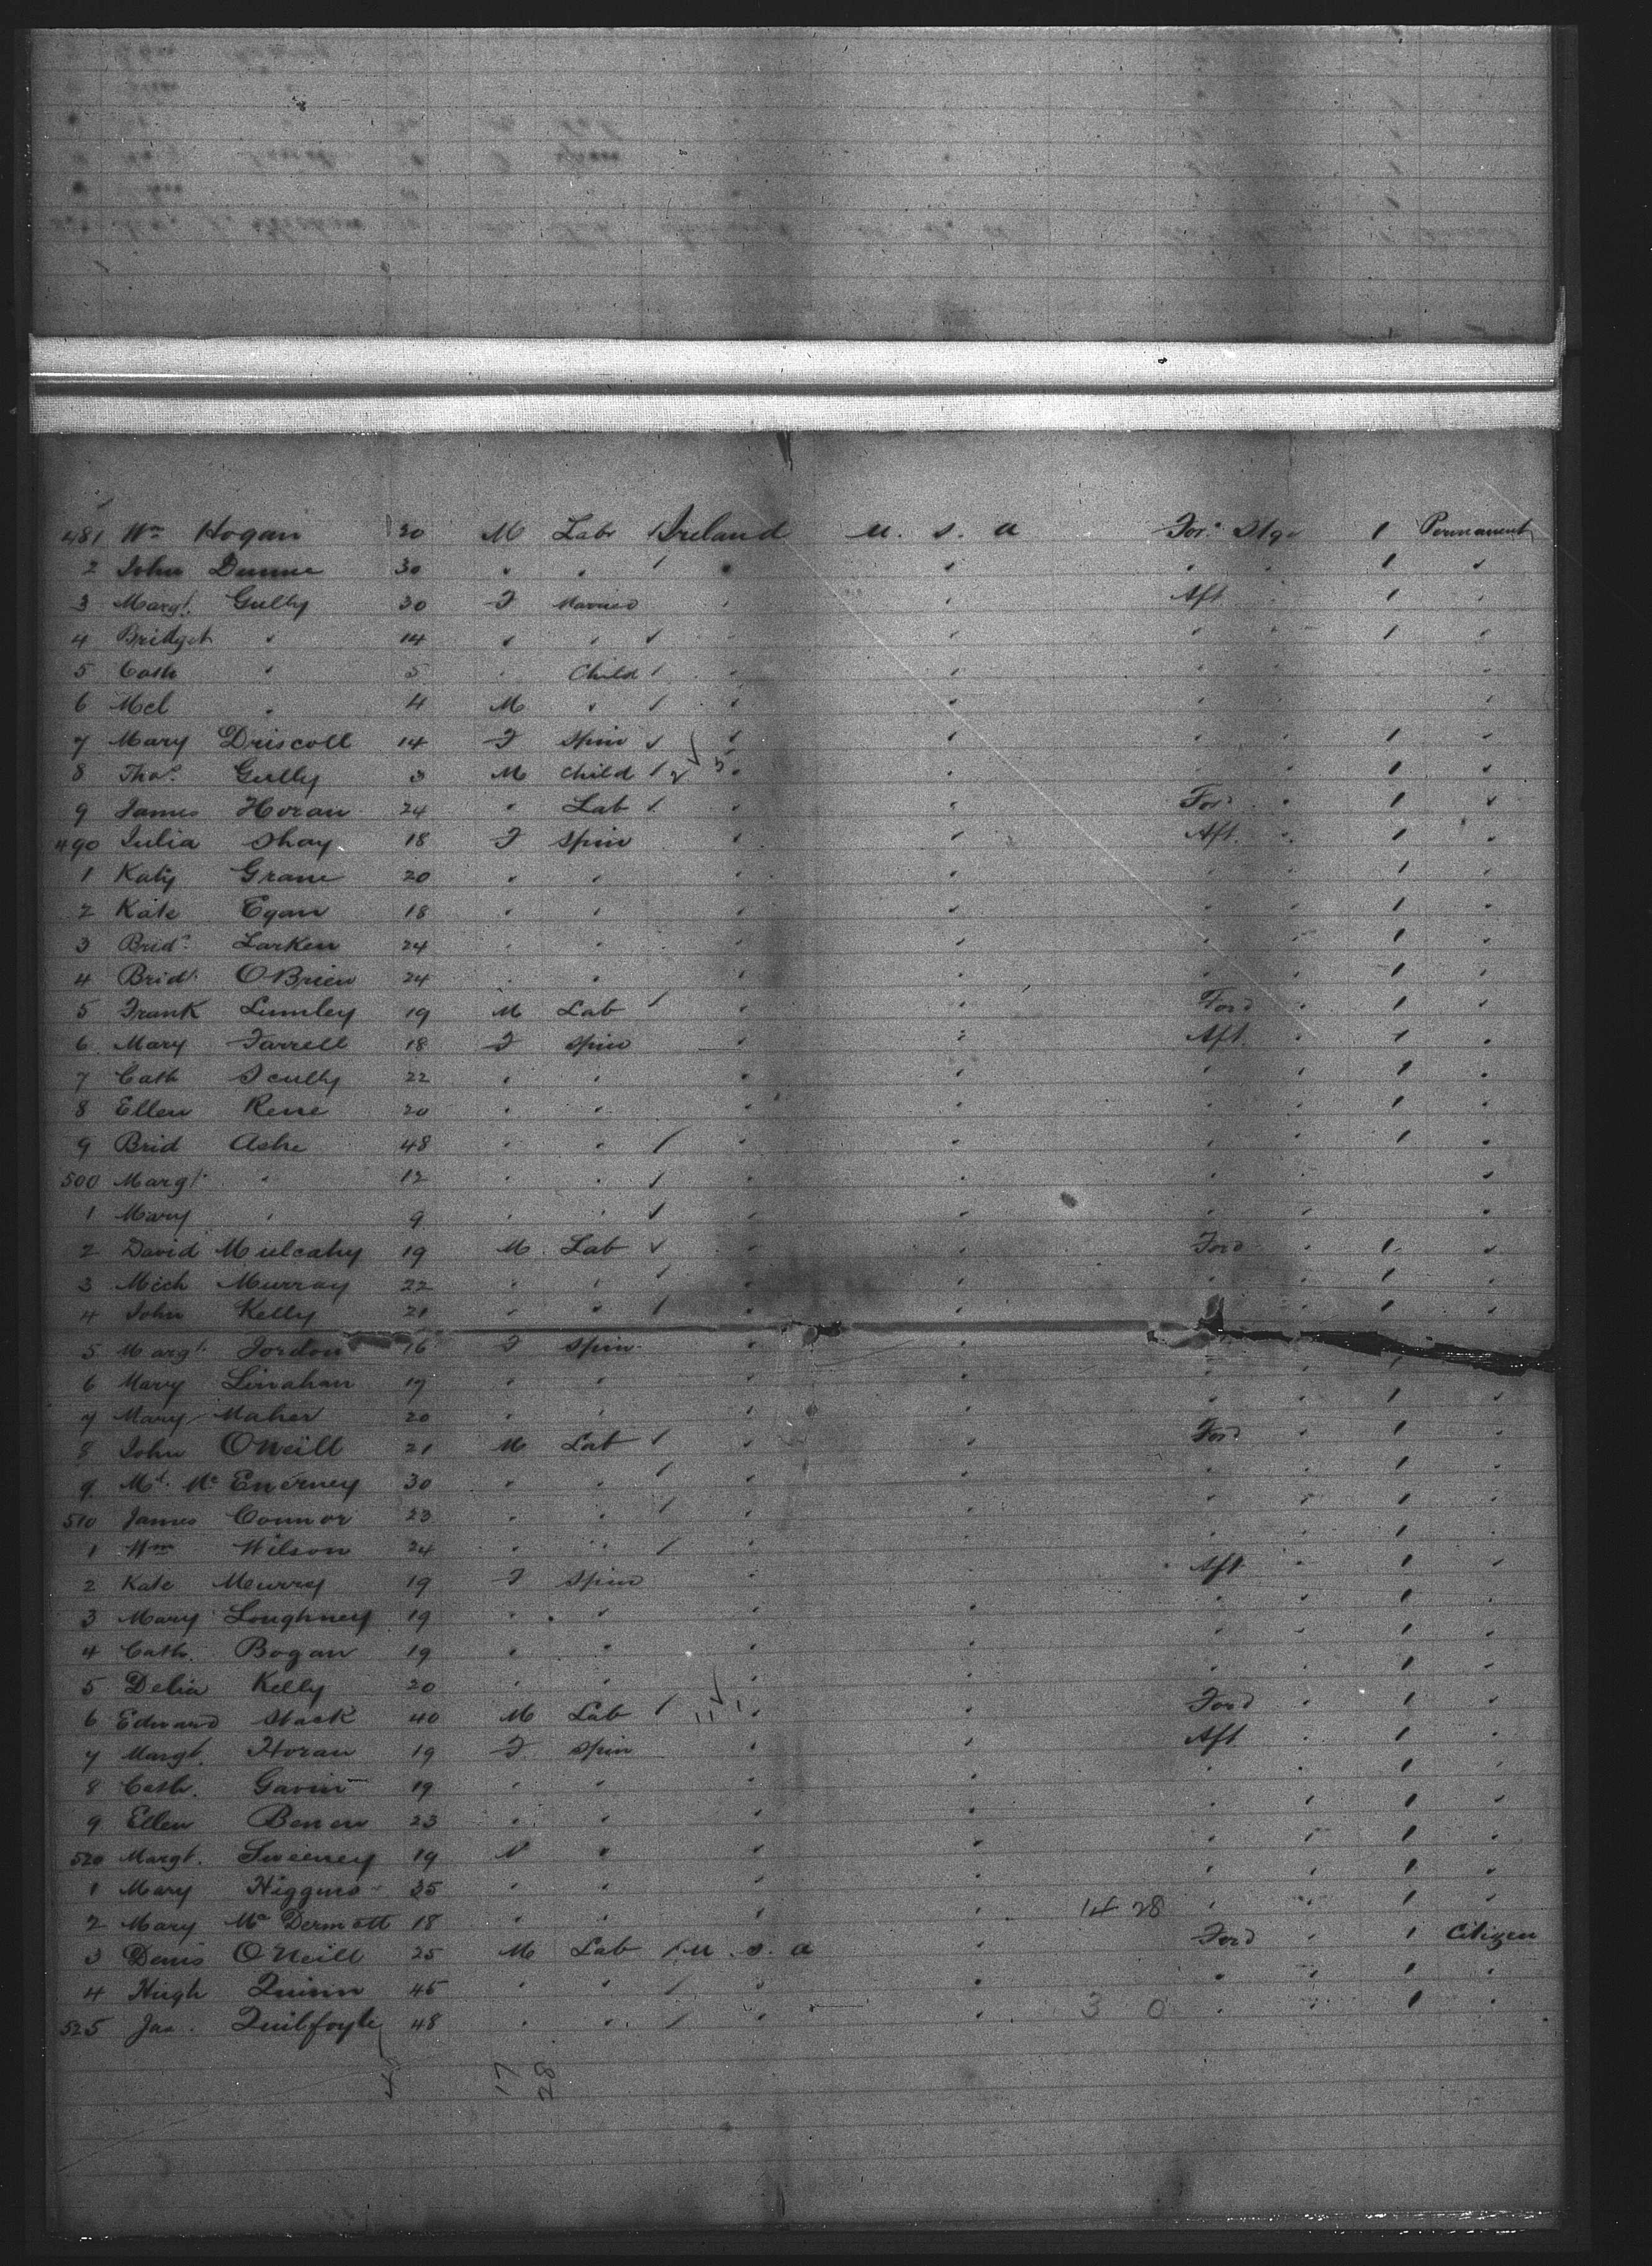 481 Wm Hogan 20 M Labr Ireland U. S. A For.d Stge 1 Permanent
2 John Dunne 30 " " " " " " 1 "
3 Margt. Gully 30 F Married " " Aft " 1 "
4 Bridget " 14 " " " " " " 1 "
5 Cath " 5 " Child " " " " "
6 Mcl " 4 M " " " " " "
7 Mary Driscoll 14 F Spin " " " " 1 "
8 Thos. Gully 3 M Child 2 5 " " " " 1 "
9 James Horan 24 " Lab " " Ford " 1 "
490 Julia Shay 18 F Spin " " Aft. " 1 "
1 Katy Grane 20 " " " " " " 1 "
2 Kate Egan 18 " " " " " " 1 "
3 Brid. Larken 24 " " " " " " 1 "
4 Bridt. O'Brien 24 " " " " " " 1 "
5 Frank Lumley 19 M Lab " " Ford " 1 "
6 Mary Farrell 18 F Spin " " Aft. " 1 "
7 Cath Scully 22 " " " " " " 1 "
8 Ellen Rene 20 " " " " " " 1 "
9 Brid Ashe 48 " " " " " " 1 "
500 Margt. " 12 " " " " " " "
1 Mary " 9 " " " " " " "
2 David Mulcahy 19 M Lab " " Ford " 1 "
3 Mich Murray 22 " " " " " " 1 "
4 John Kelly 21 " " " " " " 1 "
5 Margt. Jordon 16 F Spin " " " " 1
6 Mary Linahan 19 " " " " " " 1 "
7 Mary Maher 20 " " " " " " 1 "
8 John O'Neill 21 M Lab " " Ford " 1 "
9 Ml. McEnerney 30 " " " " " " 1 "
510 James Connor 23 " " " " " " 1 "
1 Wm Wilson 24 " " " " " " 1 "
2 Kate Meurry 19 F Spin " " Aft " 1 "
3 Mary Loughney 19 " " " " " " 1 "
4 Cath. Bogan 19 " " " " " " 1 "
5 Delia Kelly 20 " " " " " " 1 "
6 Edward Stack 40 M Lab 11 1 " " Ford " 1 "
7 Margt. Horan 19 F Spin " " Aft " 1 "
8 Cath. Gavin 19 " " " " " " 1 "
9 Ellen Benen 23 " " " " " " 1 "
520 Margt. Sweeney 19 " " " " " " 1 "
1 Mary Higgins 35 " " " " " " 1 "
2 Mary McDermott 18 " " " " 14 28 " " 1 "
3 Denis O'Neill 25 M Lab U. S. A " Ford " 1 Citizen
4 Hugh Quinn 45 " " " " " " 1 "
525 Jas. Quilfoyle 48 " " " " 3 0 " " 1 "
17 28